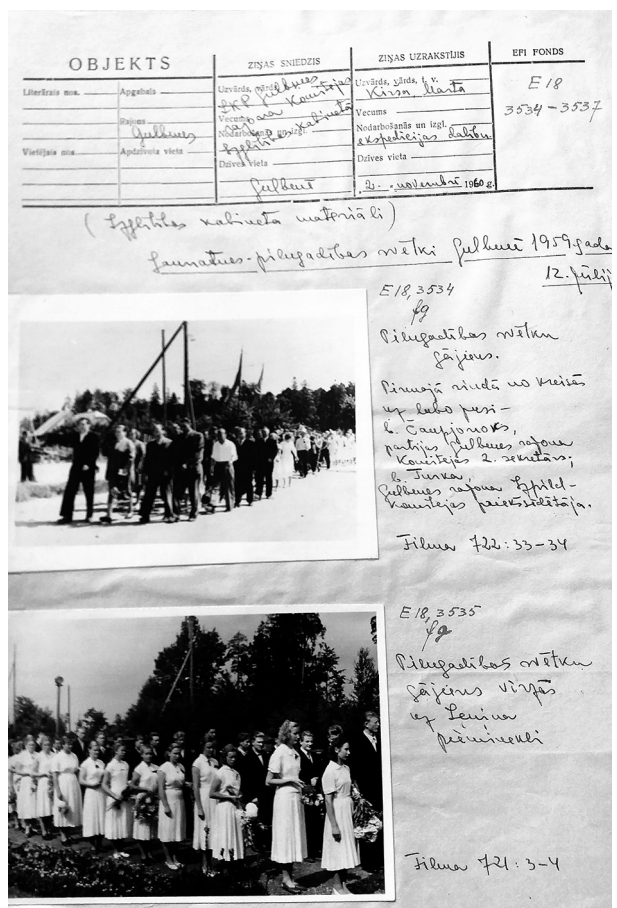 OBJEKTS
ZIŅAS SNIEDZIS
ZIŅAS UZRAKSTĪJIS
EFI FONDS
Literārais nos.
Apgabals
Rajons
Gulbenes
Vietējais nos.
Apdzīvota vieta
Uzvārds, vārds,
LKP Gulbenes
rajona Komitejas
Vecums
Nodarbošanās un izgl.
Izglītības kabinets
Dzīves vieta
Gulbenē
Uzvārds, vārds, t. v.
Kirsa Marta
Vecums
Nodarbošanās un izgl.
ekspedīcijas dalībn.
Dzīves vieta
2. novembrī 1960 g.
E 18
3534 – 3537
(Izglītības kabineta materiāli)
Jaunatnes-pilngadības svētki Gulbenē 1959. gada
12. jūlij
E18, 3534
fg
Pilngadības svētku
gājiens.
Pirmajā rindā no kreisās
uz labo pusi –
b. Čampjonoks,
partijas Gulbenes rajona
Komitejas 2. sekretārs;
b. Turka,
Gulbenes rajona Izpild-
komitejas priekšsēdētāja.
Filma 722:33–34
E18, 3535
fg
Pilngadības svētku
gājiens virzās
uz Ļeņina
pieminekli
Filma 721:3–4